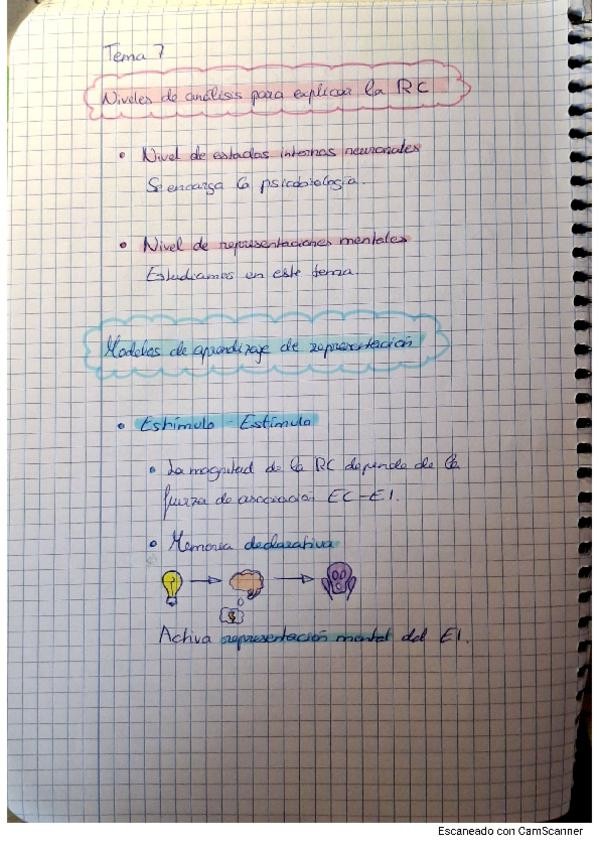 Tema 7
Niveles de análisis para explicar la RC
• Nivel de estados internos neuronales
Se encarga la psicobiología.
• Nivel de representaciones mentales
Estudiamos en este tema.
Modelos de aprendizaje de representación
• Estímulo - Estímulo
• La magnitud de la RC depende de la
fuerza de asociación EC-EI.
• Memoria declarativa
$
Activa representación mental del EI.
Escaneado con CamScanner